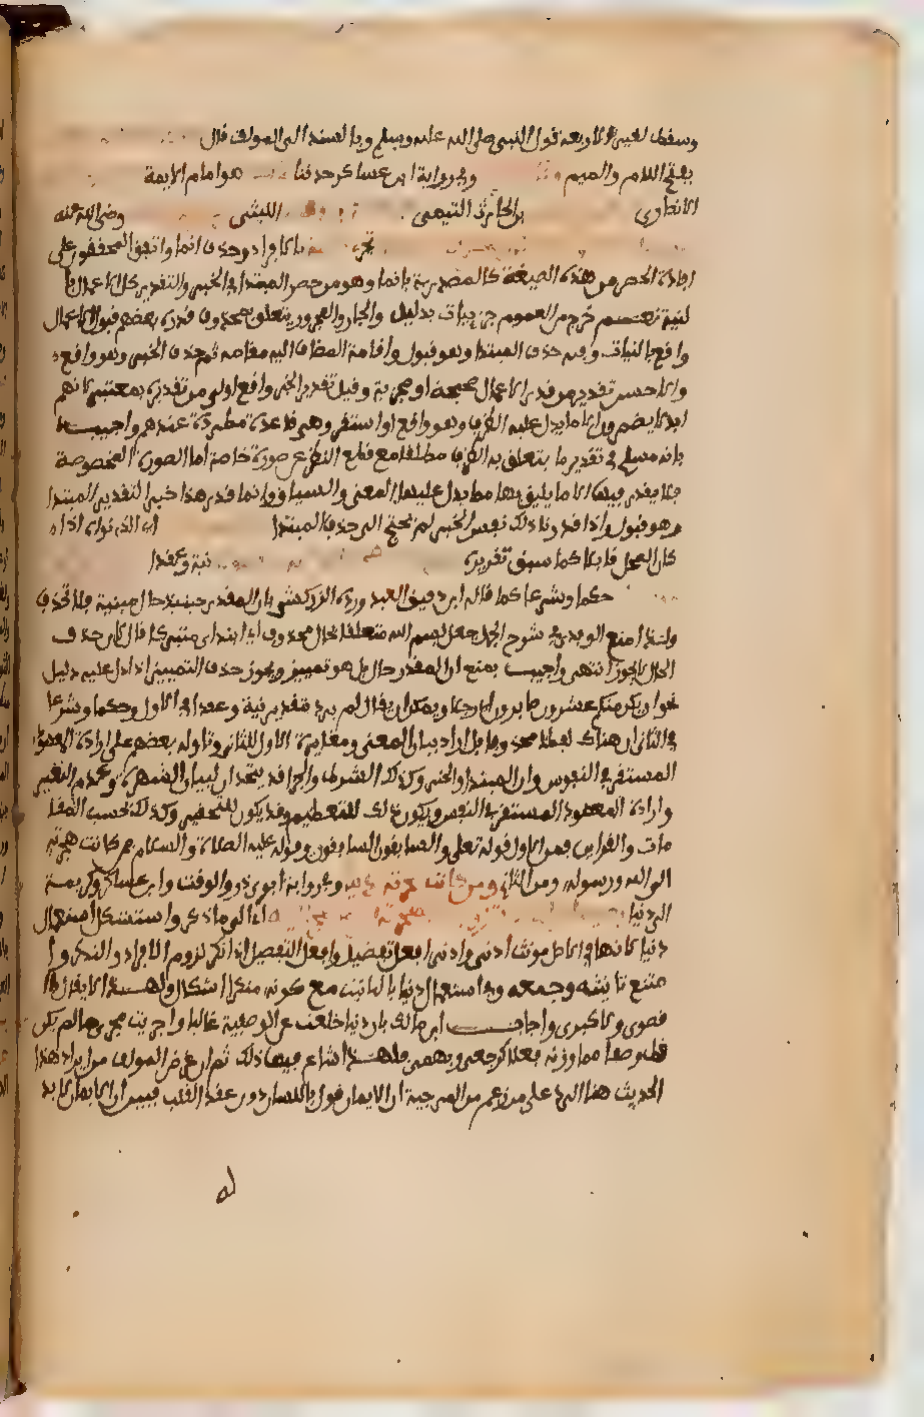 وسقط لغير الاربعة قول النبي صلى الله عليه وسلم وبالسند الى المولف قال
بفتح اللام والميم وفي رواية ابن عساكر حدثنا هو امام الايمة
الانصاري بن الحارث التيمي الليثي رضي الله عنه
بالافراد وحذف انما واتفق المحققون على
افادة الحصر من هذه الصيغة كالمصدرة بانما وهو من حصر المبتدا في الخبر والتقدير كل الاعمال با
لنية نعم خرج من العموم جزييات بدليل والجار والمجرور يتعلق بمحذوف قدره بعضهم قبول الاعمال
واقع بالنيات وفيه حذف المبتدا وهو قبول واقامة المضاف اليه مقامه ثم حذف الخبر وهو واقع
والاحسن تقدير من قدر الاعمال صحيحة او مجزية وقيل تقدير الخبر واقع اولى من تقديره بمعتبر لانهم
ابدا لا يضمرون الا ما يدل عليه الظرف وهو واقع او استقر وهي قاعدة مطردة عندهم واجيب
بانه مسلم في تقدير ما يتعلق به الظرف مطلقا مع قطع النظر عن صورة خاصة اما الصورة المخصوصة
فلا يقدر فيها الا ما يليق بها مما يدل عليها المعنى والسياق وانما قدر هذا خبرا لتقدير المبتدا
وهو قبول واذا قدرنا ذلك نفس الخبر لم نحتج الى حذف المبتدا اي الذي نواه اذا
كان المحل قابلا كما سبق تقريره نية وعقدا
حكما وشرعا كما قاله ابن دقيق العيد ورده الزركشي بان المقدر حينيذ حال مبينة فلا تحذف
ولهذا منع الرندي في شرح الجمل جعل بسم الله متعلقا بحال محذوف اي ابتدي متبركا قال لان حذف
الحال لا يجوز انتهى واجيب بمنع ان المقدر حال بل هو تمييز ويجوز حذف التمييز اذا دل عليه دليل
نحو ان يكن منكم عشرون صابرون اي رجلا ويمكن ان يقال لم يرد بتقدير نية وعقدا في الاول وحكما وشرعا
في الثاني ان هناك لفظا محذوفا بل اراد بيان المعنى ومغايرة الاول للثاني وتاوله بعضهم على ارادة المعهود
المستقر في النفوس وان المبتدا والخبر وكذلك الشرط والجزا قد يتحدان لبيان الشهرة وعدم التغير
وارادة المعهود المستقر في النفس ويكون ذلك للتعظيم وقد يكون للتحقير وكذلك بحسب المقا
مات والقراين فمن الاول قوله تعلى والسابقون السابقون وقوله عليه الصلاة والسلام فمن كانت هجرته
الى الله ورسوله ومن الثاني ومن كانت هجرته وفي رواية ابوي ذر والوقت وابن عساكر وكريمة
الى دنيا اي الى ما ذكر واستشكل استعمال
دنيا لانها في الاصل مونث ادنى وادنى افعل تفضيل وافعل التفضيل اذا نكر لزم الافراد والتذكير وا
متنع تانيثه وجمعه وفي استعمال دنيا بالتانيث مع كونه منكرا اشكال ولهذا لا يقال
قصوى ولا كبرى واجاب ابن مالك بان دنيا خلعت عن الوصفية غالبا واجريت مجرى ما لم يكن
قط وصفا مما وزنه فعلى كرجعى وبهمى فلهذا ساغ فيها ذلك ثم ان غرض المولف من ايراد هذا
الحديث هنا الرد على من زعم من المرجية ان الايمان قول باللسان دون عقد القلب فبين ان الايمان لا بد
له